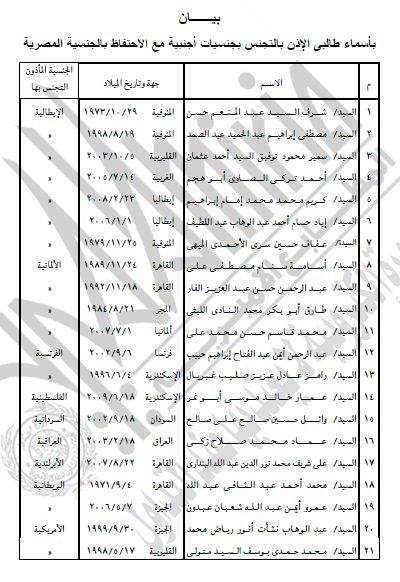 بيـــــان
بأسماء طالبى الإذن بالتجنس بجنسيات أجنبية مع الاحتفاظ بالجنسية المصرية
م الاســـم جهة وتاريخ الميلاد الجنسية المأذون التجنس بها
١ السيد/ شرف السيد عبد المنعم حسن المنوفية ١٩٧٣/١٠/٢٩ الإيطالية
٢ السيد/ مصطفى إبراهيم عبد الحميد عبد الصمد المنوفية ١٩٩٨/٨/١٩ »
٣ السيد/ سمير محمود توفيق السيد أحمد عثمان القليوبية ٢٠٠٣/١٠/٥ »
٤ السيد/ أحمد تركى الصاوى أبو هجم الغربية ٢٠٠٥/٧/١٤ »
٥ السيد/ كريم محمد محمد إمام إبراهيم إيطاليا ٢٠٠٨/٢/٢٣ »
٦ السيد/ إياد حسام أحمد عبد الوهاب عبد اللطيف إيطاليا ٢٠٠٦/١/١ »
٧ السيد/ عفاف حسين سرى الأحمدى الميهى المنوفية ١٩٧٩/١١/٢٥ »
٨ السيد/ أسامة سنام مصطفى على القاهرة ١٩٨٩/١١/٢٤ الألمانية
٩ السيد/ عبد الرحمن حسن عبد العزيز الفار القاهرة ١٩٩٢/١١/١٨ »
١٠ السيد/ طارق أبو بكر محمد النادى الليثى المجر ١٩٨٤/٨/٢١ »
١١ السيد/ محمد قاسم حسن محمد على ألمانيا ٢٠٠٧/٧/١ »
١٢ السيد/ عبد الرحمن أيمن عبد الفتاح إبراهيم حبيب فرنسا ٢٠٠٢/٩/٦ الفرنسية
١٣ السيد/ رامز عادل عزيز صليب غبريال الإسكندرية ١٩٩٦/٦/٤ »
١٤ السيد/ عمار خالد موسى أبو نمر الإسكندرية ٢٠٠٩/٦/١٨ الفلسطينية
١٥ السيد/ وائل حسين صالح على صالح السودان ٢٠٠٢/٩/١٨ السودانية
١٦ السيد/ عماد محمد صلاح زكى العراق ٢٠٠٣/٢/١٨ العراقية
١٧ السيد/ على شريف محمد نور الدين عبد الله البندارى القاهرة ٢٠٠٧/٨/٢٢ الأيرلندية
١٨ السيد/ محمد أحمد عبد الشافى عبد الله القاهرة ١٩٧١/٩/٤ البريطانية
١٩ السيد/ عمرو أيمن عبد الله شعبان عبدون الجيزة ٢٠٠٦/٥/٧ »
٢٠ السيد/ عبد الوهاب نشأت أنور رياض محمد الجيزة ١٩٩٩/٩/٣٠ الأمريكية
٢١ السيد/ محمد حمدى يوسف السيد متولى القليوبية ١٩٩٨/٥/١٧ »